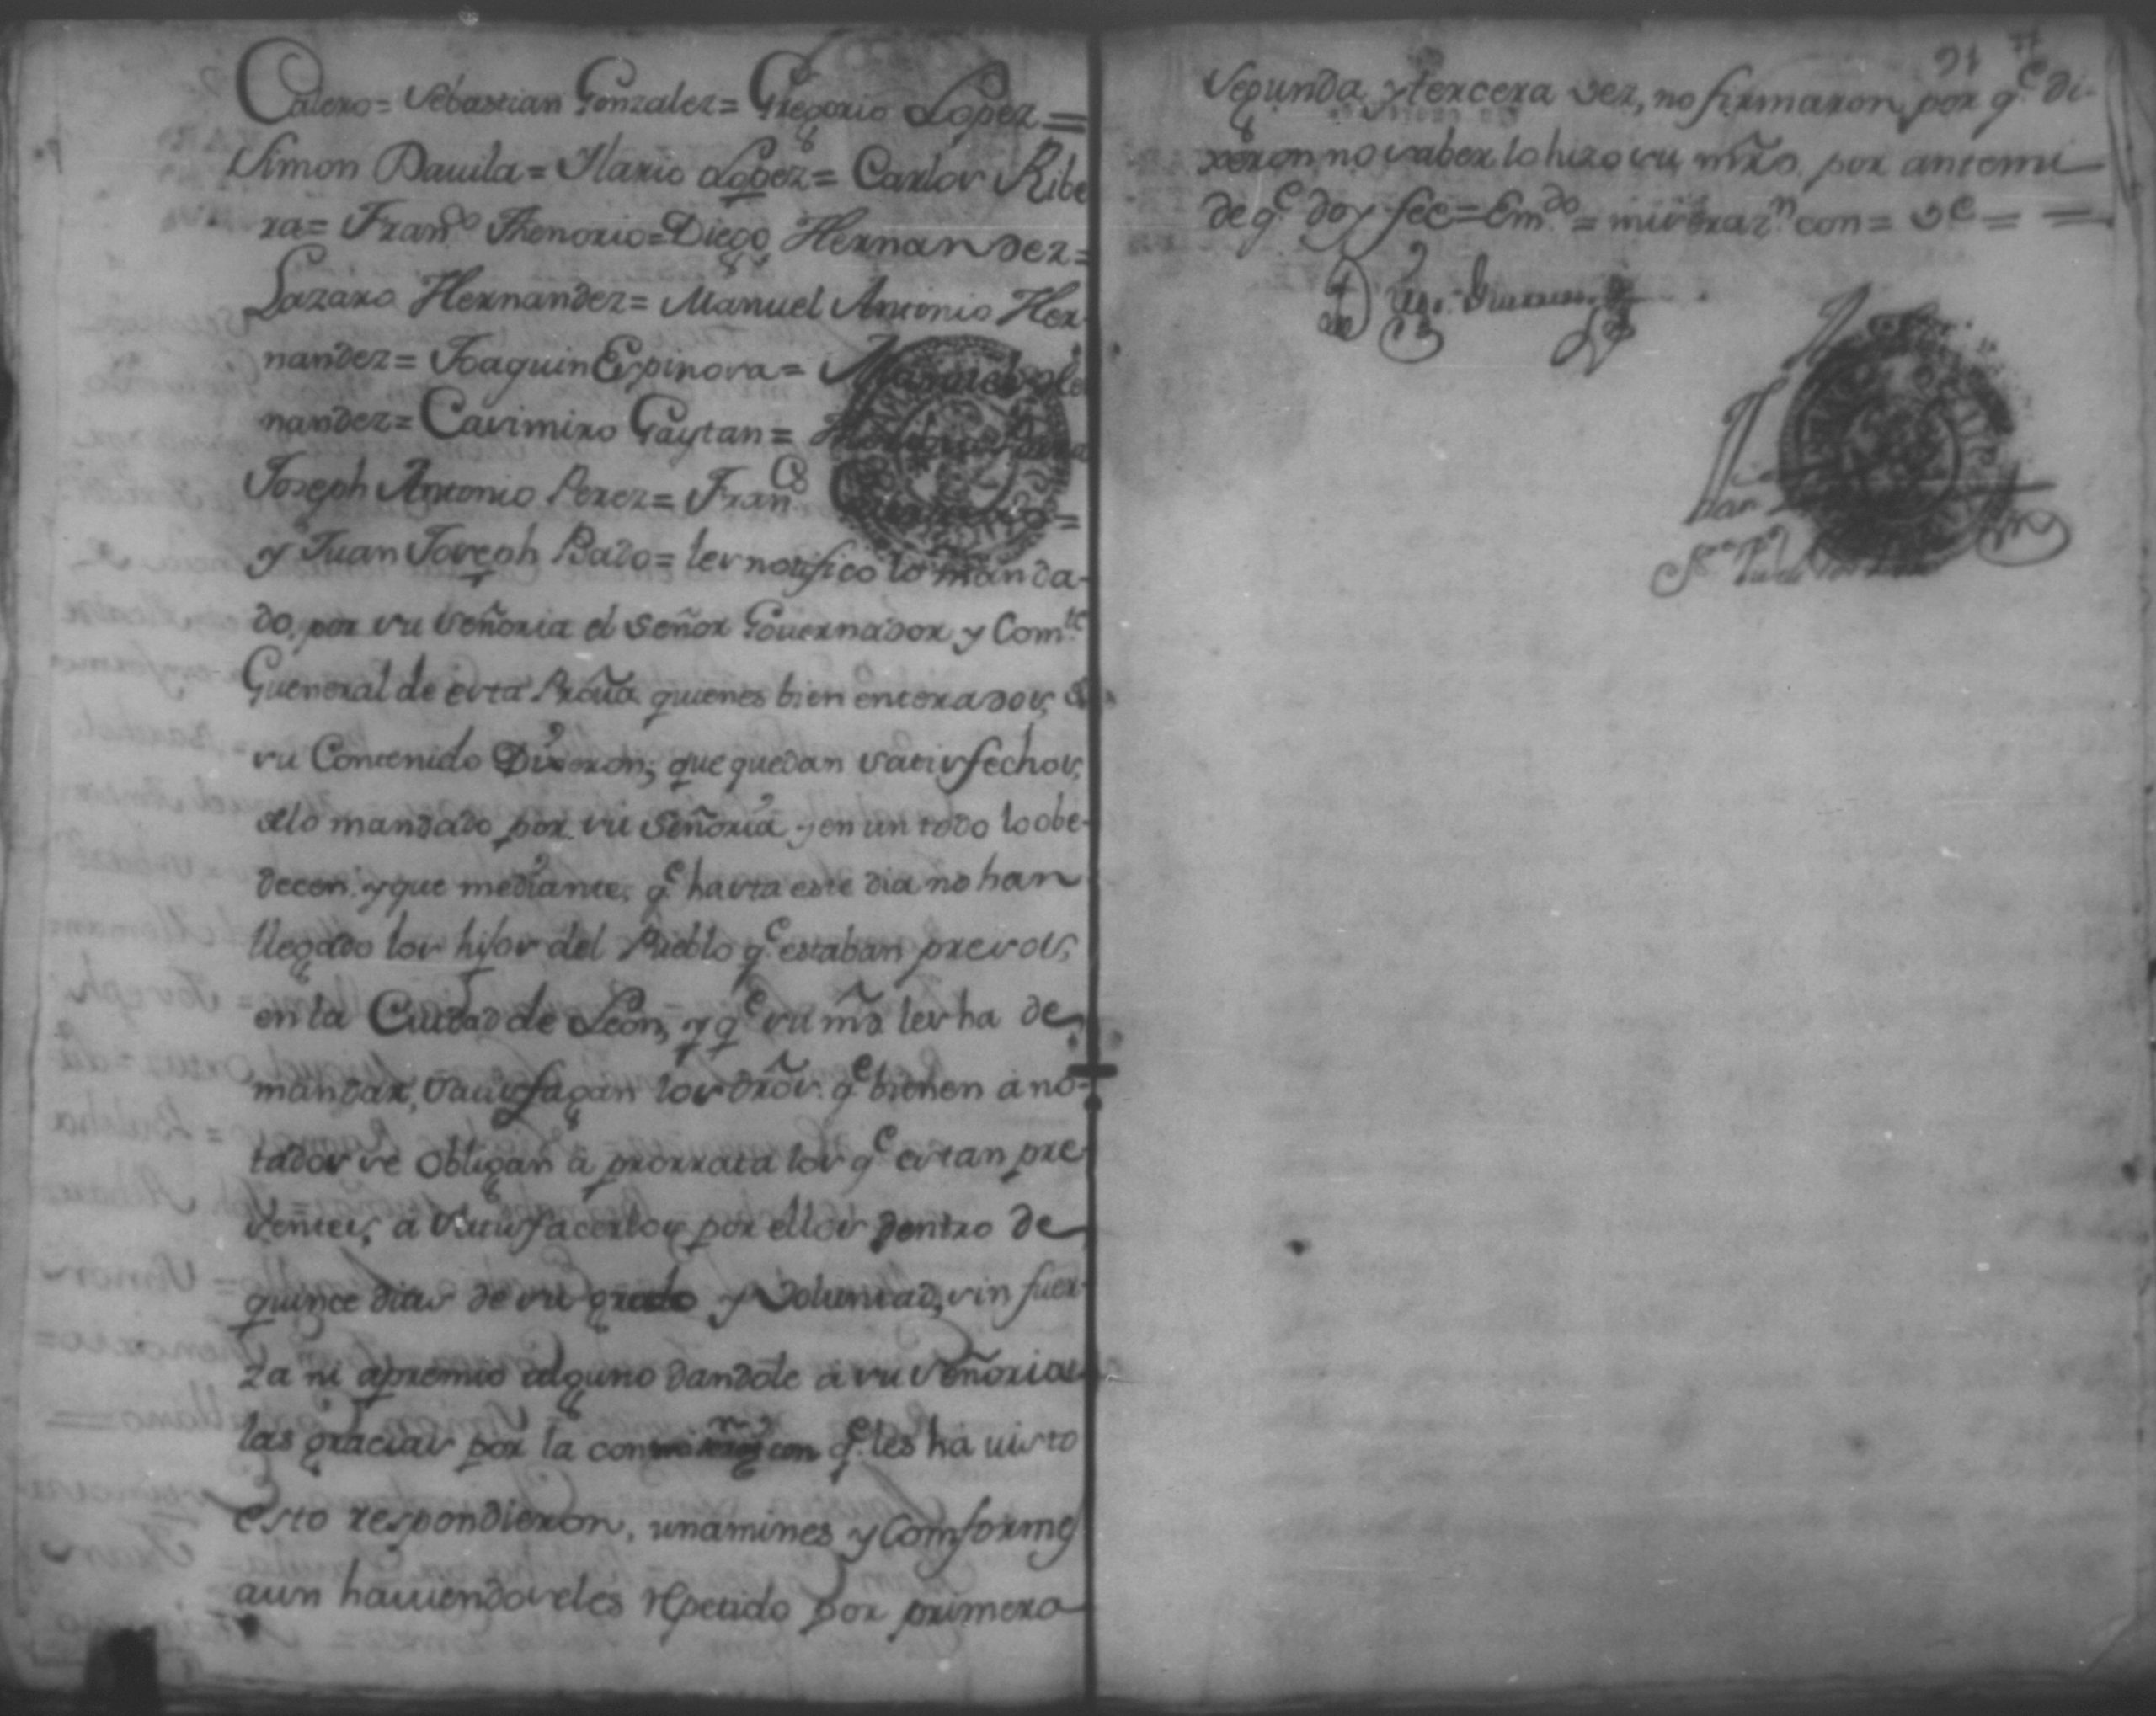 Calero = Sebastian Gonzalez = Gregorio Lopez =
Simon Dauila = Ylario Lopez = Carlos Ribe
ra = Franco Thenorio = Diego Hernandez =
Lazaro Hernandez = Manuel Antonio Her
nandez = Joaquin Espinosa = Manuel
nandez = Casimiro Gaytan =
Joseph Antonio Perez = Franco
y Juan Joseph Bado = les notifico lo manda-
do, por su Señoria el Señor Gouernador y Comte
Gueneral de esta Proũa quienes bien enterados,
su Contenido Dixeron; que quedan satisfechos,
alo mandado por su Señoria y en un todo lo obe-
decen, y que mediante, qe hasta este dia no han
llegado los hijos del Pueblo qe estaban presos,
en la Ciudad de Leon, y qe su md̃ les ha de
mandar, Satisfagan los dr̃os. qe bienen ano-
tados se Obligan á prorrata los qe estan pre
sentes, á Satisfacerlos por ellos dentro de
quince dias de su grado y Voluntad, sin fuer-
za ni apremio alguno dandole á su Señoria
las gracias por la con qe les ha uisto
esto respondieron, unamines y Comformes
aun hauiendoseles repetido por primera
21
Segunda y tercera vez, no firmaron por qe di-
xeron no saber lo hizo su mr̃o por antemi
de qe doy fee = Emdo = con =